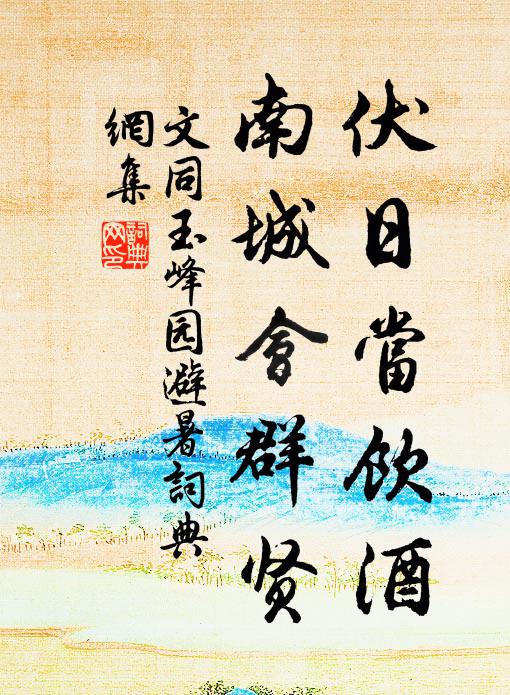 伏日當飲酒
南城會群贤
文同玉峰园避暑詞典
網集
詞典
网印